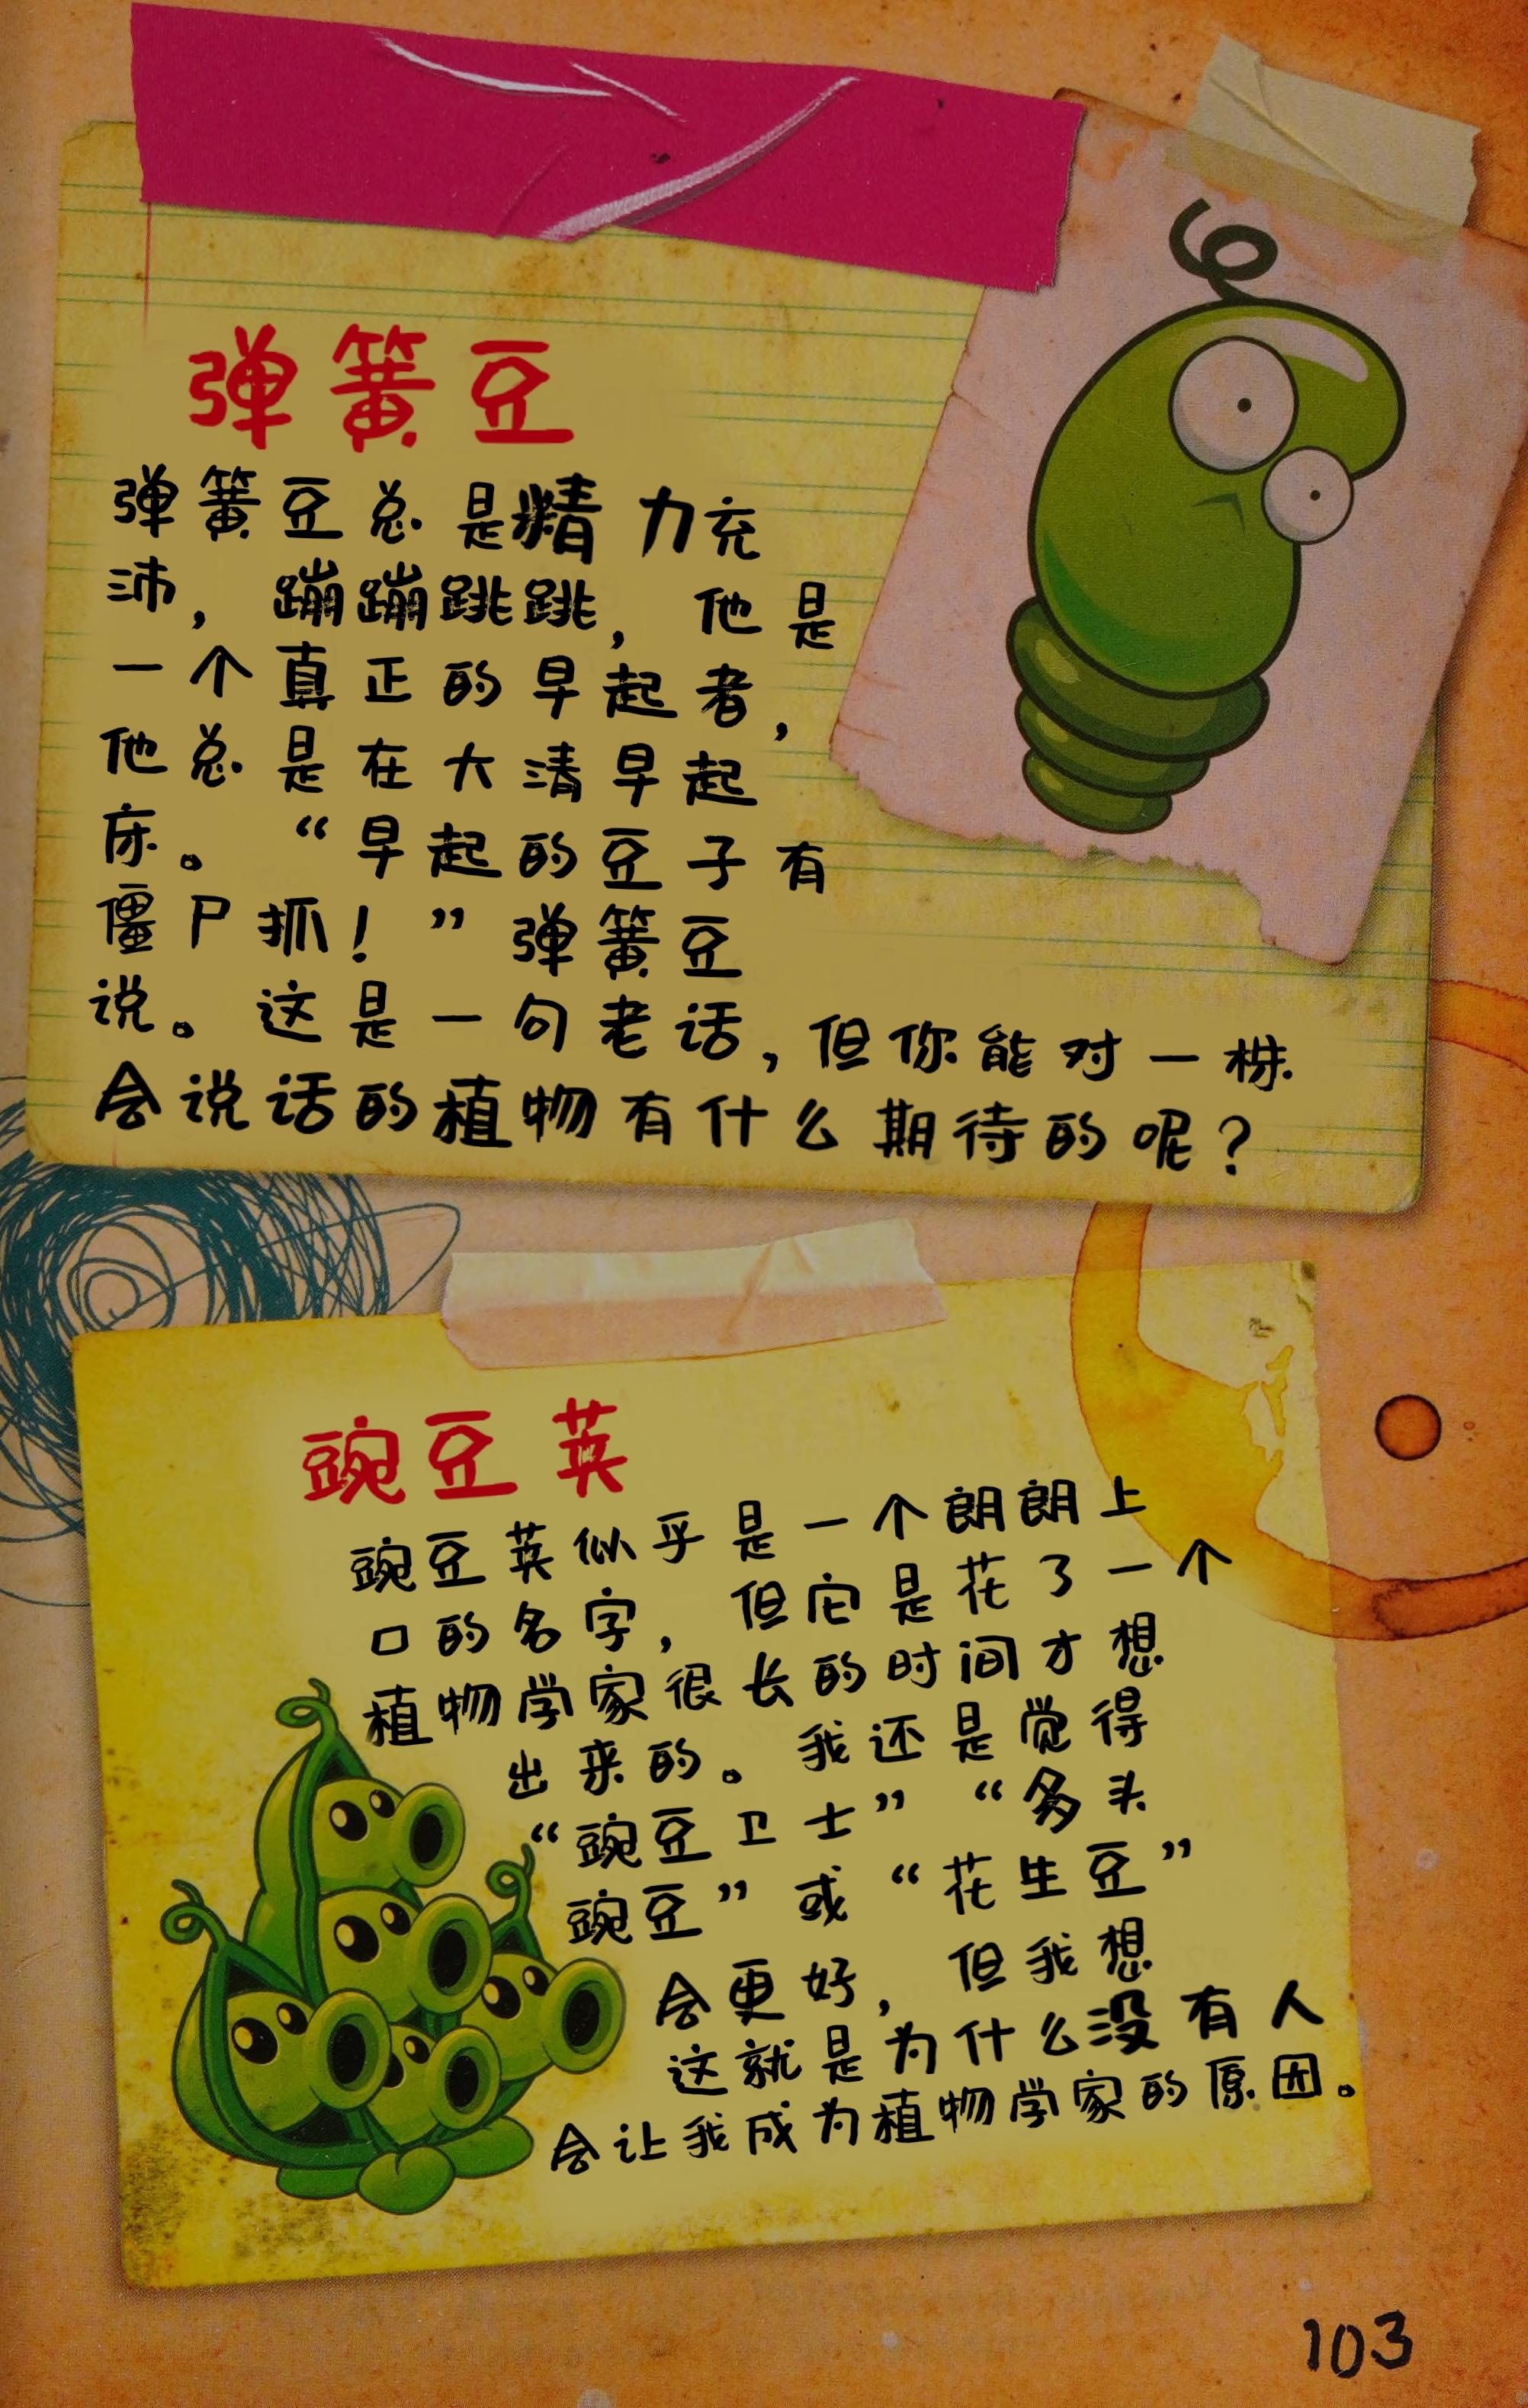 弹簧豆
弹簧豆总是精力充
沛，蹦蹦跳跳，他是
一个真正的早起者，
他总是在大清早起
床。“早起的豆子有
僵尸抓！”弹簧豆
说。这是一句老话，但你能对一株
会说话的植物有什么期待的呢？
豌豆荚
豌豆荚似乎是一个朗朗上
口的名字，但它是花了一个
植物学家很长的时间才想
出来的。我还是觉得
“豌豆卫士”“多头
豌豆”或“花生豆”
会更好，但我想
这就是为什么没有人
会让我成为植物学家的原因。
103